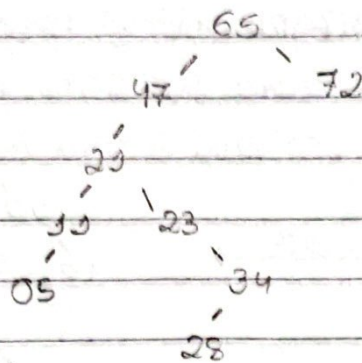 65
47 72
21
11 23
05 34
28